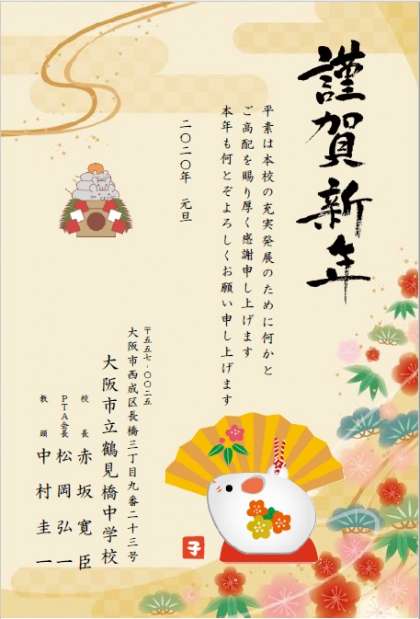 謹賀新年
平素は本校の充実発展のために何かと
ご高配を賜り厚く感謝申し上げます
本年も何とぞよろしくお願い申し上げます
二〇二〇年　元旦
〒五五七-〇〇二五
大阪市西成区長橋三丁目九番二十三号
大阪市立鶴見橋中学校
校　長　赤坂寛臣
PTA会長　松岡弘一
教　頭　中村圭一
子